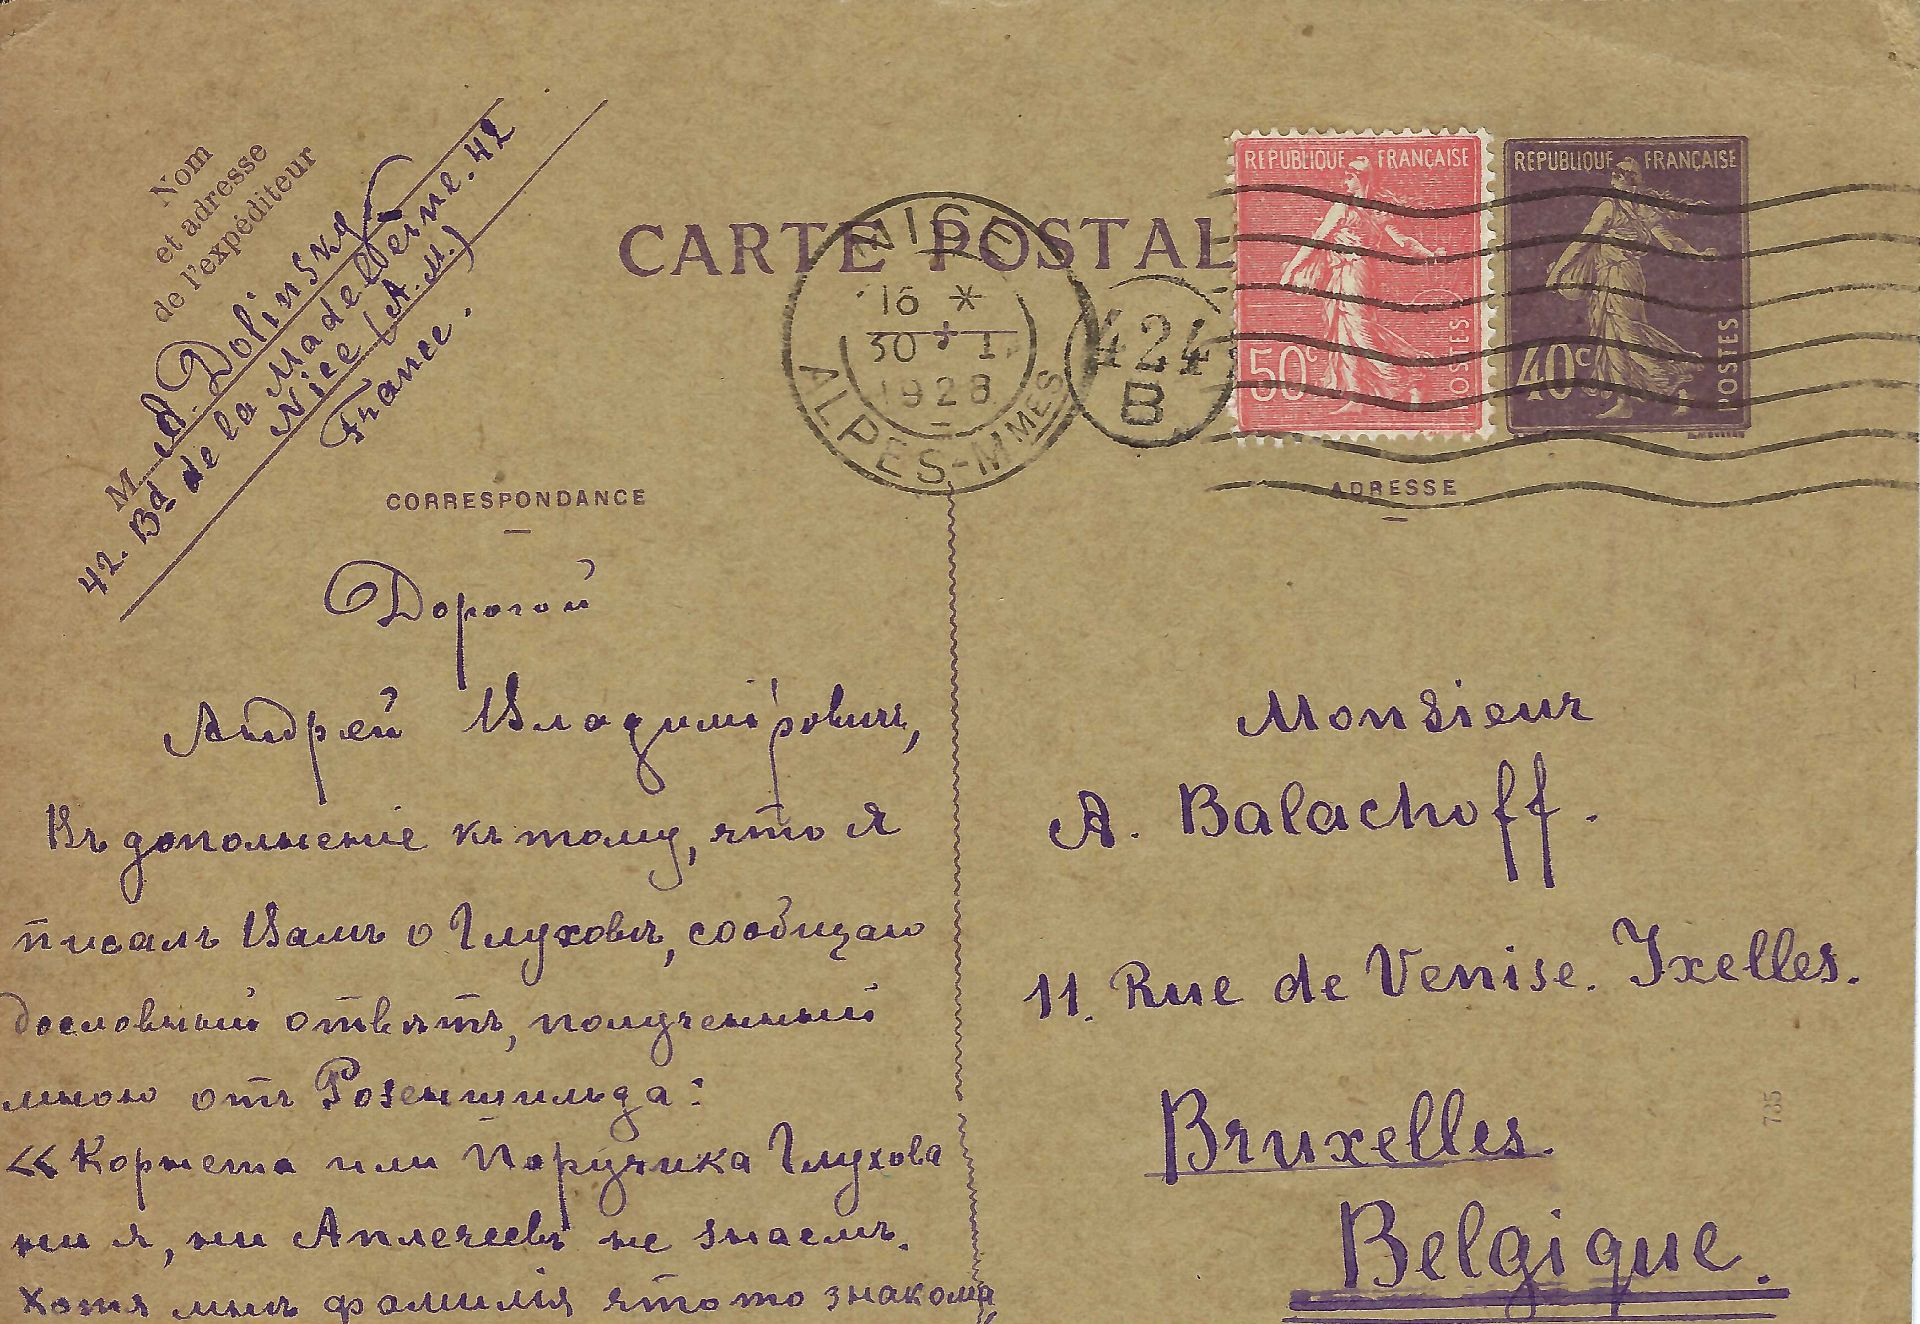 Nom
et adresse
de l'expéditeur
M. A. Dolinsky
42. Bd de la Madeleine. 42
Nice (A.M.)
France.
CARTE POSTAL
NICE
16 *
30 I
1928
ALPES-MMES
424
B
REPUBLIQUE FRANÇAISE
50c
POSTES
REPUBLIQUE FRANÇAISE
40c
POSTES
CORRESPONDANCE
Дорогой
Андрей Владиміровичъ,
Въ дополненіе къ тому, что я
писалъ Вамъ о Глуховѣ, сообщаю
дословный отвѣтъ, полученный
мною отъ Розеншильда:
«Корнета или Поручика Глухова
ни я, ни Аплечеевъ не знаемъ.
Хотя мнѣ фамилія что то знакома,
ADRESSE
Monsieur
A. Balachoff.
11. Rue de Venise. Ixelles.
Bruxelles.
Belgique.
735